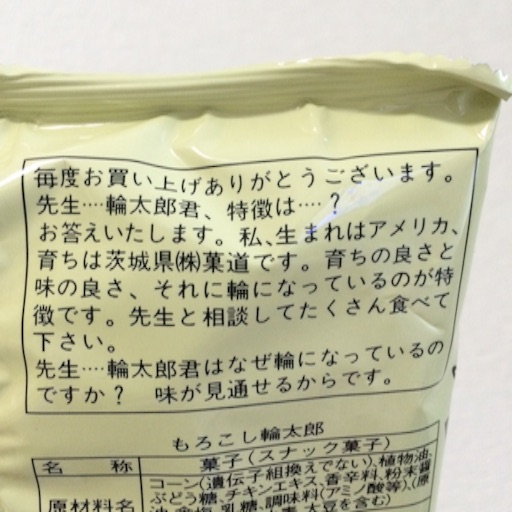 毎度お買い上げありがとうございます。
先生‥‥輪太郎君、特徴は‥‥?
お答えいたします。私、生まれはアメリカ、
育ちは茨城県㈱菓道です。育ちの良さと
味の良さ、それに輪になっているのが特
徴です。先生と相談してたくさん食べて
下さい。
先生‥‥輪太郎君はなぜ輪になっているの
ですか? 味が見通せるからです。
もろこし輪太郎
名 称 菓子(スナック菓子)
原材料名 コーン(遺伝子組換えでない)、植物油、
ぶどう糖、チキンエキス、香辛料、粉末醤
油、食塩、乳糖、調味料(アミノ酸等)、(原
大豆を含む)